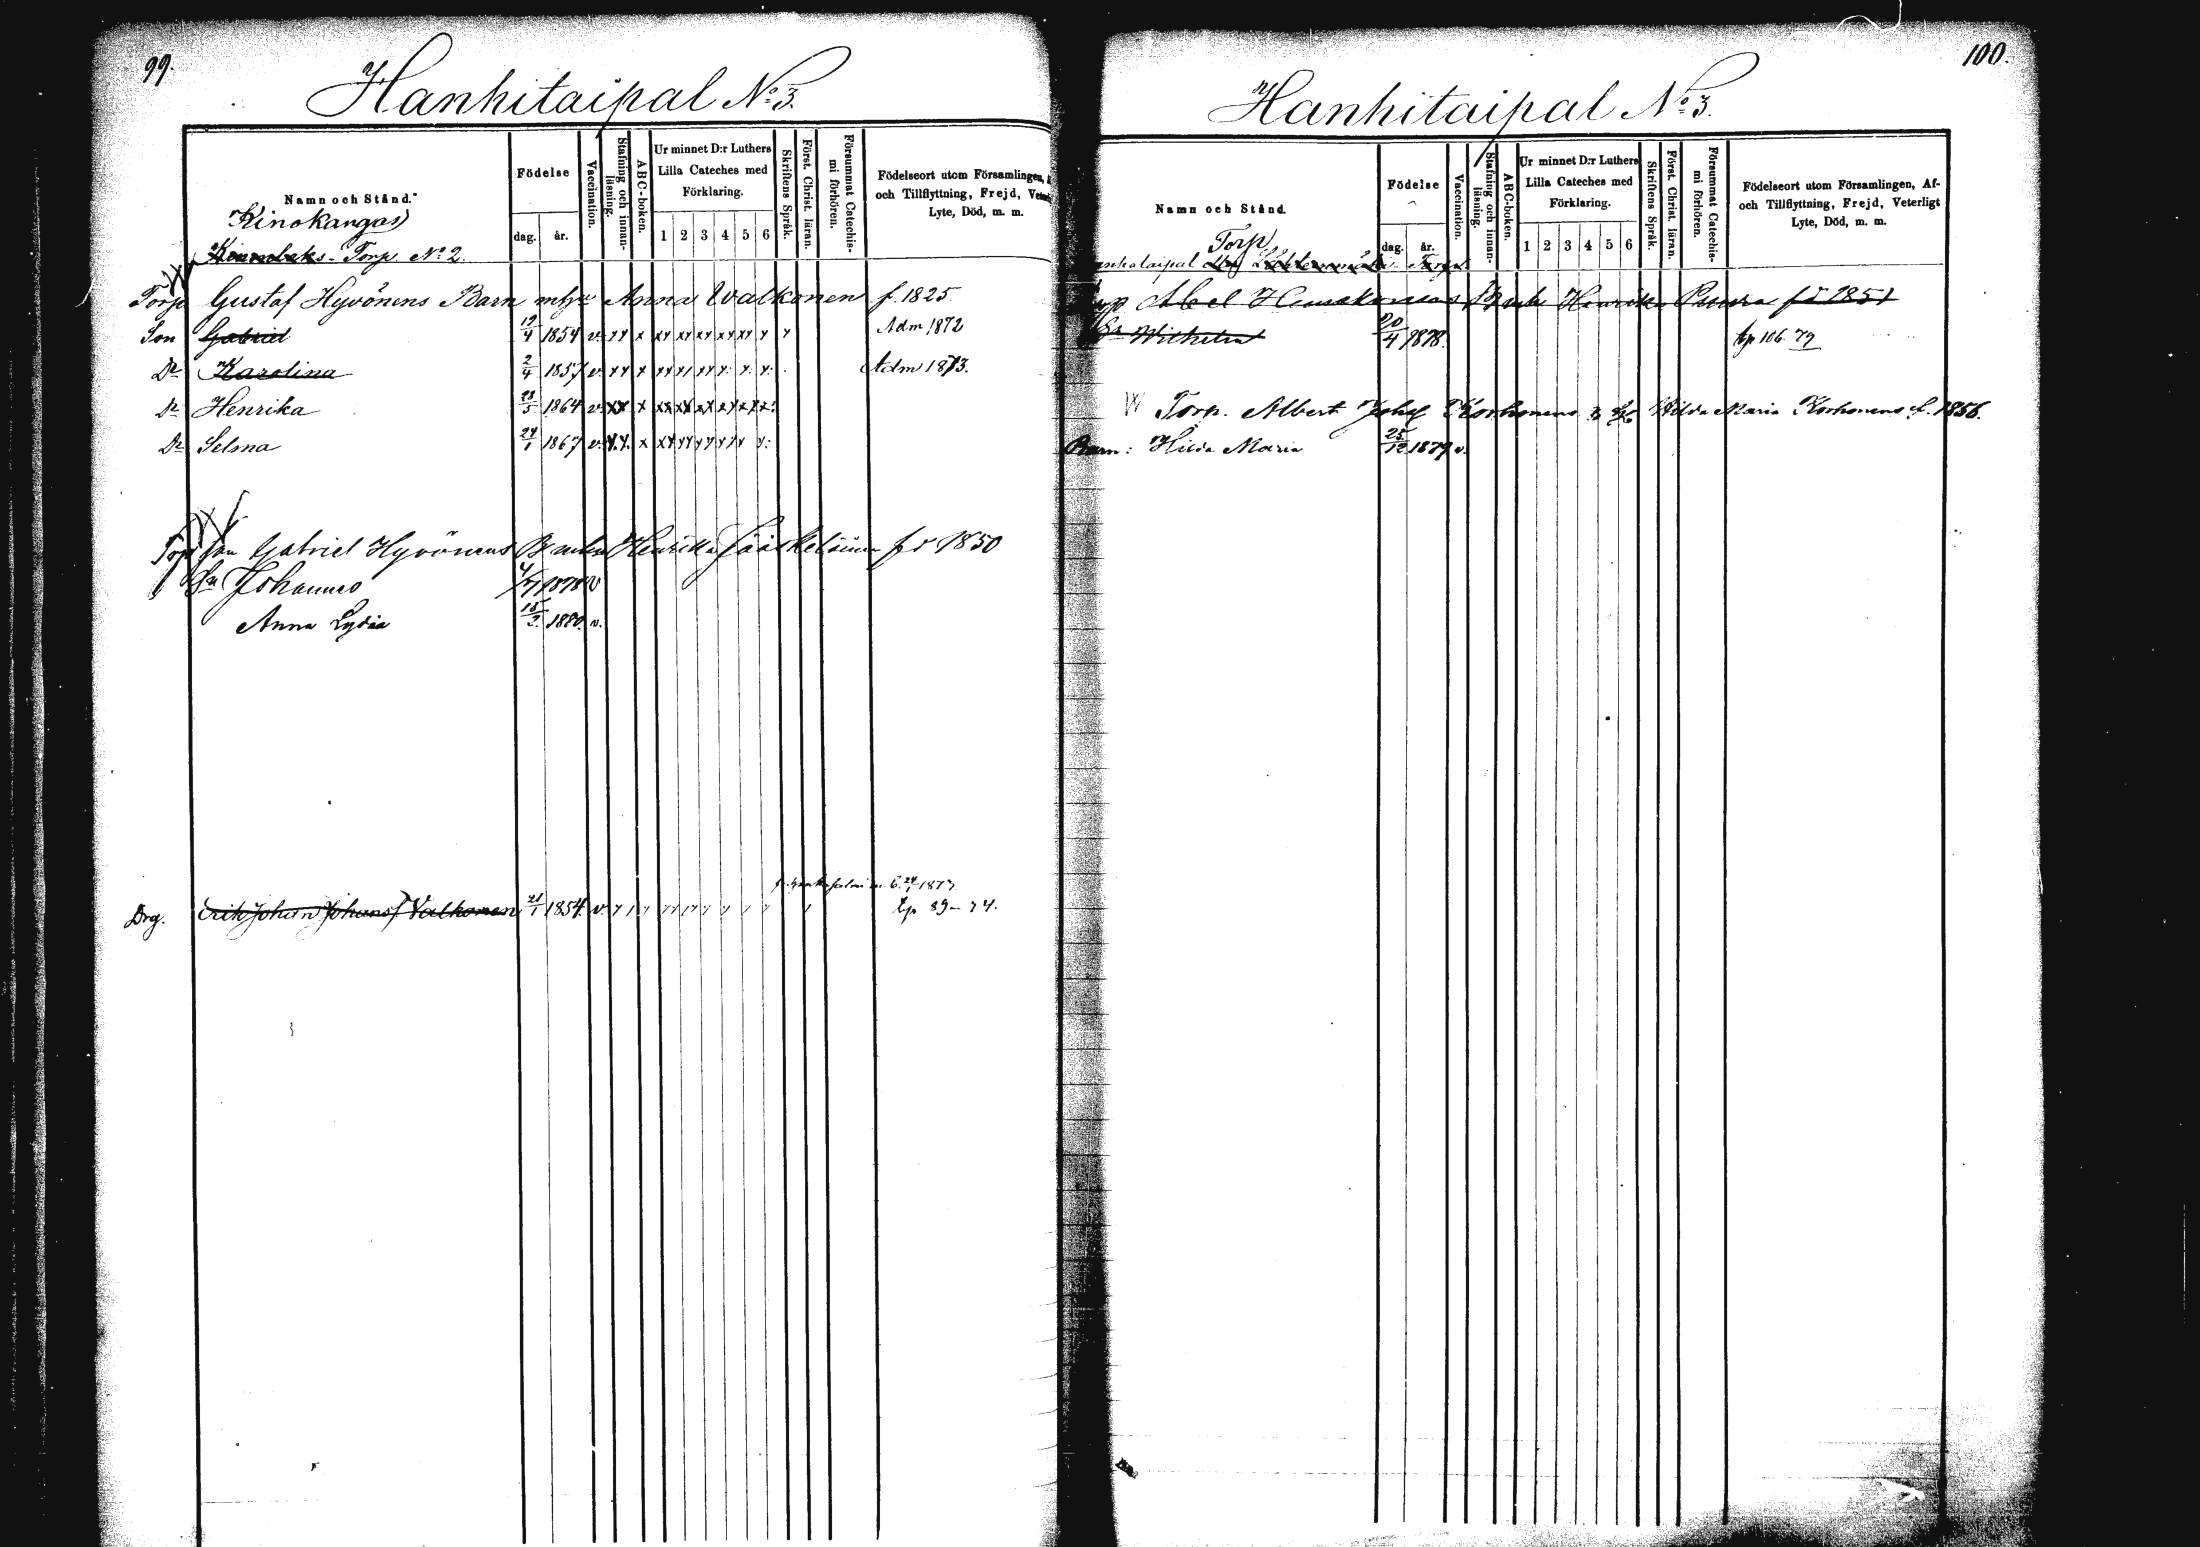 99.
Hanhitaipal No 3.
Namn och Stånd.
Födelse
dag.
år.
Vaccination.
Stafning och innan-
läsning.
ABC-boken.
Ur minnet D:r Luthers
Lilla Cateches med
Förklaring.
1 2 3 4 5 6
Skriftens Språk.
Först. Christ. läran.
Försummat Catechis-
mi förhören.
Födelseort utom Församlingen,
och Tillflyttning, Frejd,
Lyte, Död, m. m.
Kinokangas
Torp No 2.
Torp Gustaf Hyvönens Barn Anna Walkonen f. 1825
Son Gabriel 19/4 1854 v. Adm 1872
Dr Karolina 2/4 1857 v. Adm 1873.
Dr Henrika 23/5 1864 v.
Dr Selma 24/1 1867 v.
Gabriel Hyvönens Henrika Jääskeläinen 1850
Sn Johannes 1878 v
Anna Lydia 18/2 1880. v.
Drg. Erik Johan Johansf Valkonen 21/1 1854. v. tp 89-74.
100.
Hanhitaipal No 3.
Namn och Stånd.
Födelse
dag.
år.
Vaccination.
Stafning och innan-
läsning.
ABC-boken.
Ur minnet D:r Luthers
Lilla Cateches med
Förklaring.
1 2 3 4 5 6
Skriftens Språk.
Först. Christ. läran.
Försummat Catechis-
mi förhören.
Födelseort utom Församlingen, Af-
och Tillflyttning, Frejd, Veterligt
Lyte, Död, m. m.
Torp
Abel Henrika 1851
Wilhelm 20/4 1878. tp 106. 79
Torp. Albert Johf Korhonens Hilda Maria Korhonens f. 1856.
Barn: Hilda Maria 25/12 1879 v.